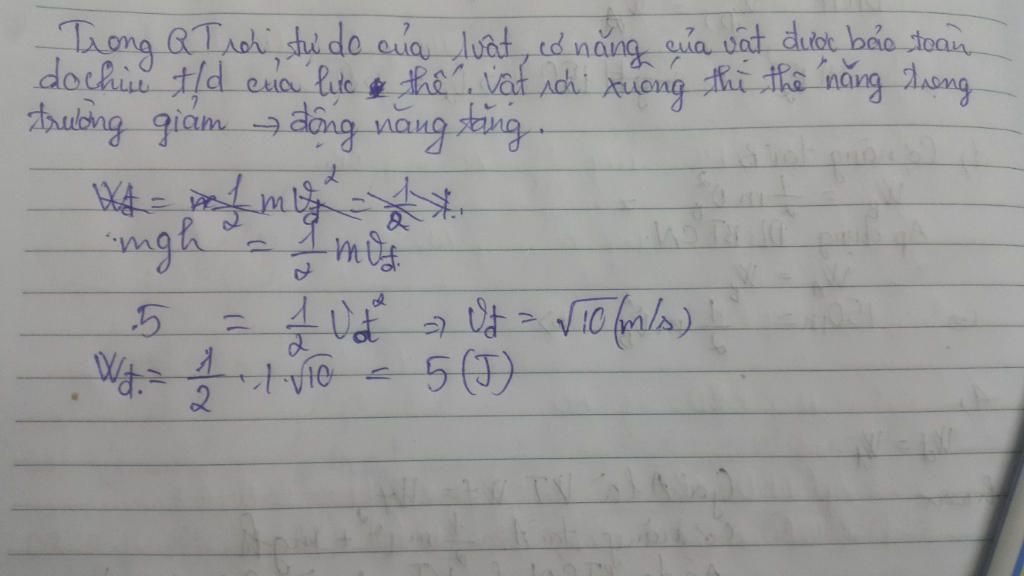 Trong QT rơi tự do của 1 vật, cơ năng của vật được bảo toàn
do chịu t/d của lực thế. Vật rơi xuống thì thế năng trọng
trường giảm → động năng tăng.
mgh = 1/2 mv_đ
5 = 1/2 v_đ² ⇒ v_đ = √10 (m/s)
W_đ = 1/2 . 1 . √10 = 5 (J)